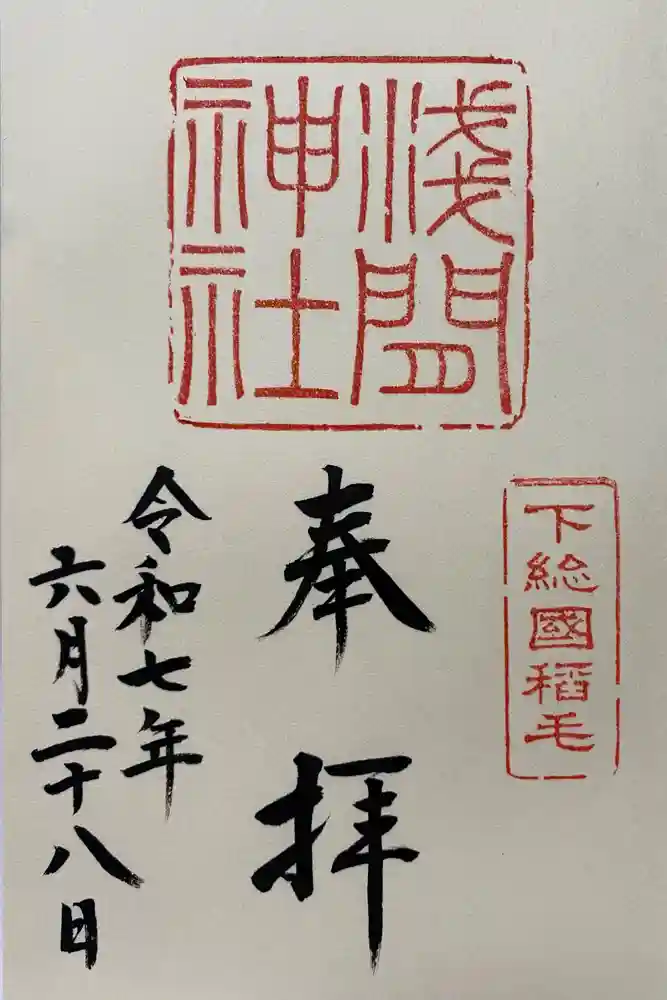 下総國稲毛
淺間
神社
奉拝
令和七年
六月二十八日